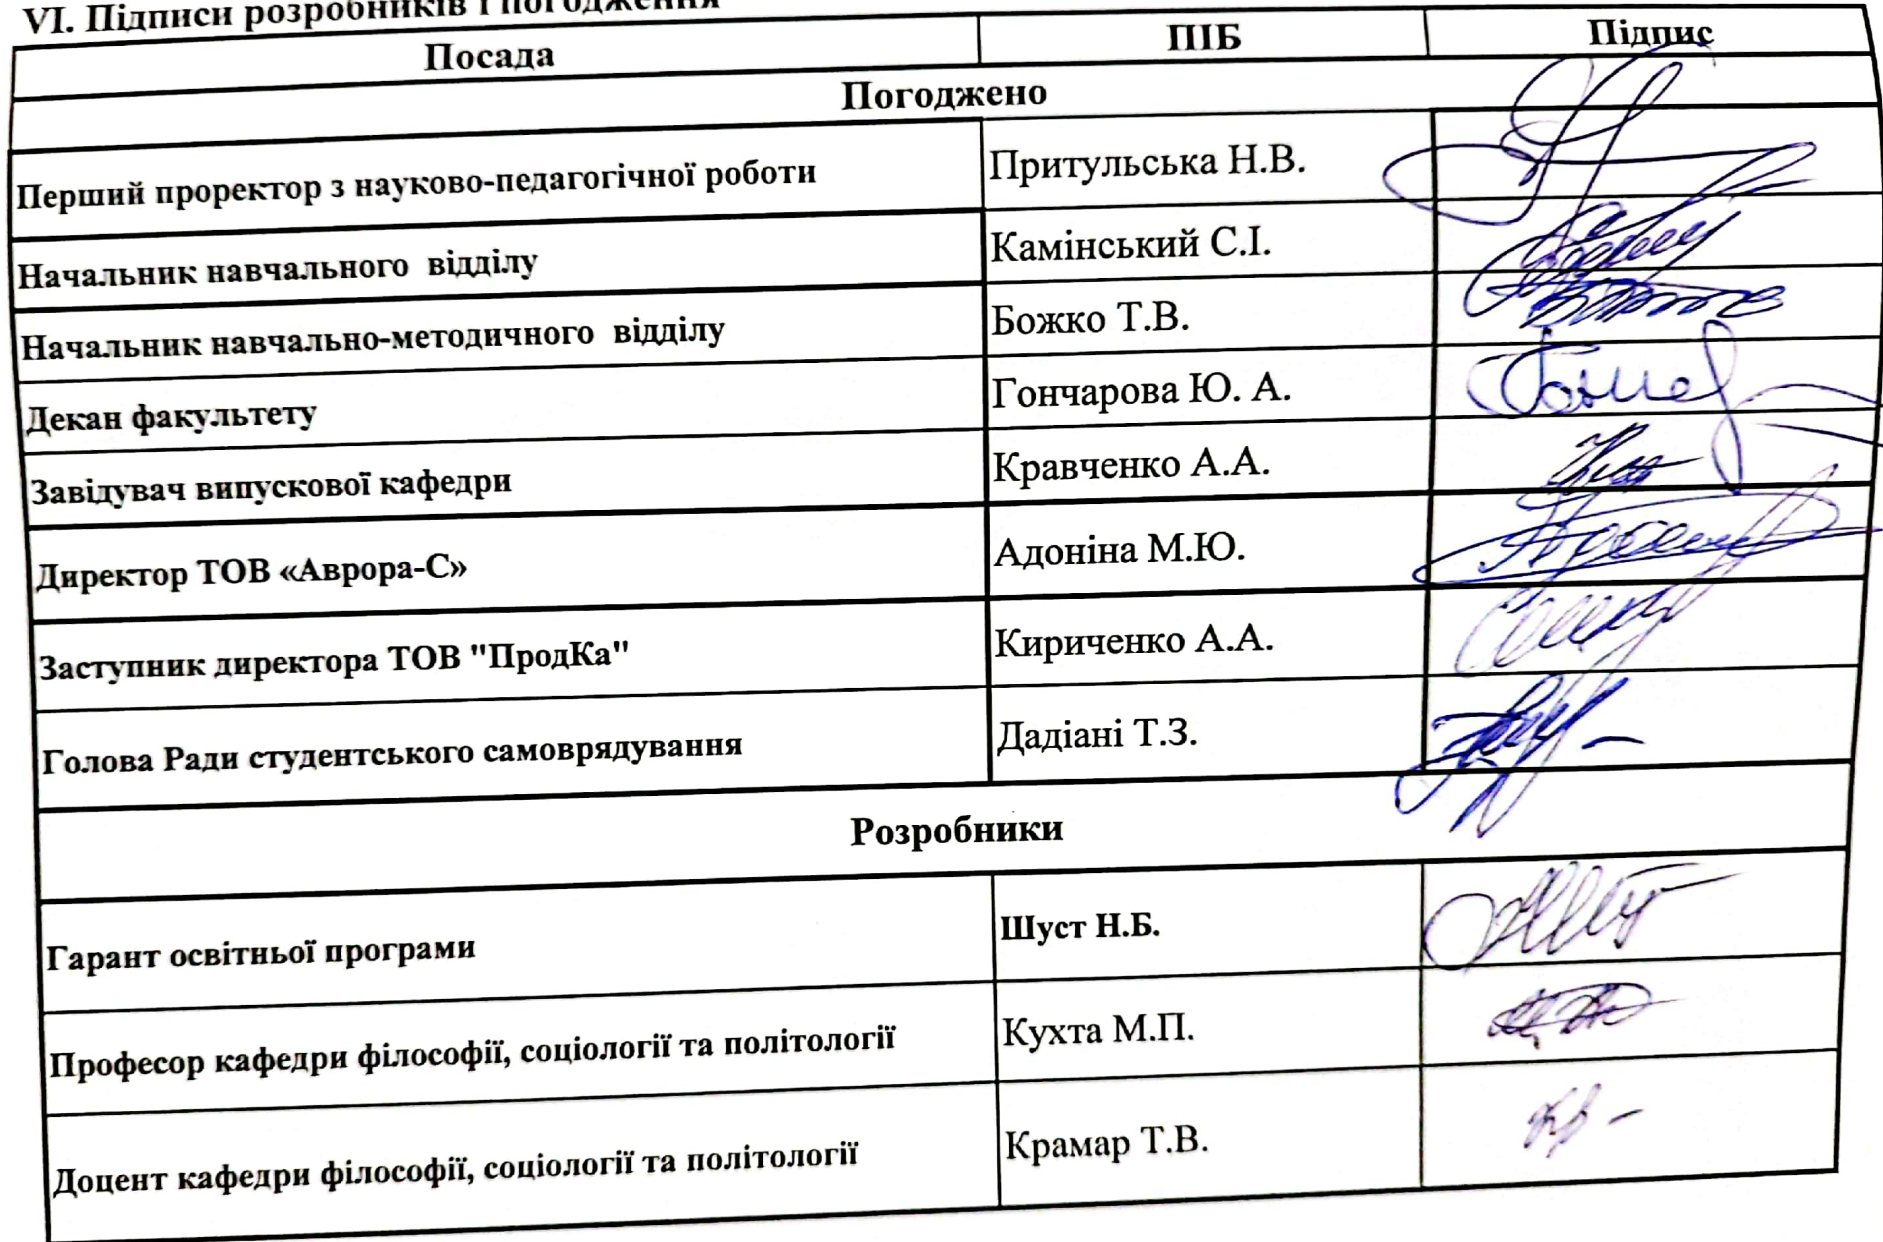 VI. Підписи розробників і погодження
Посада ПІБ Підпис
Погоджено
Перший проректор з науково-педагогічної роботи Притульська Н.В.
Начальник навчального відділу Камінський С.І.
Начальник навчально-методичного відділу Божко Т.В.
Декан факультету Гончарова Ю. А.
Завідувач випускової кафедри Кравченко А.А.
Директор ТОВ «Аврора-С» Адоніна М.Ю.
Заступник директора ТОВ "ПродКа" Кириченко А.А.
Голова Ради студентського самоврядування Дадіані Т.З.
Розробники
Гарант освітньої програми Шуст Н.Б.
Професор кафедри філософії, соціології та політології Кухта М.П.
Доцент кафедри філософії, соціології та політології Крамар Т.В.